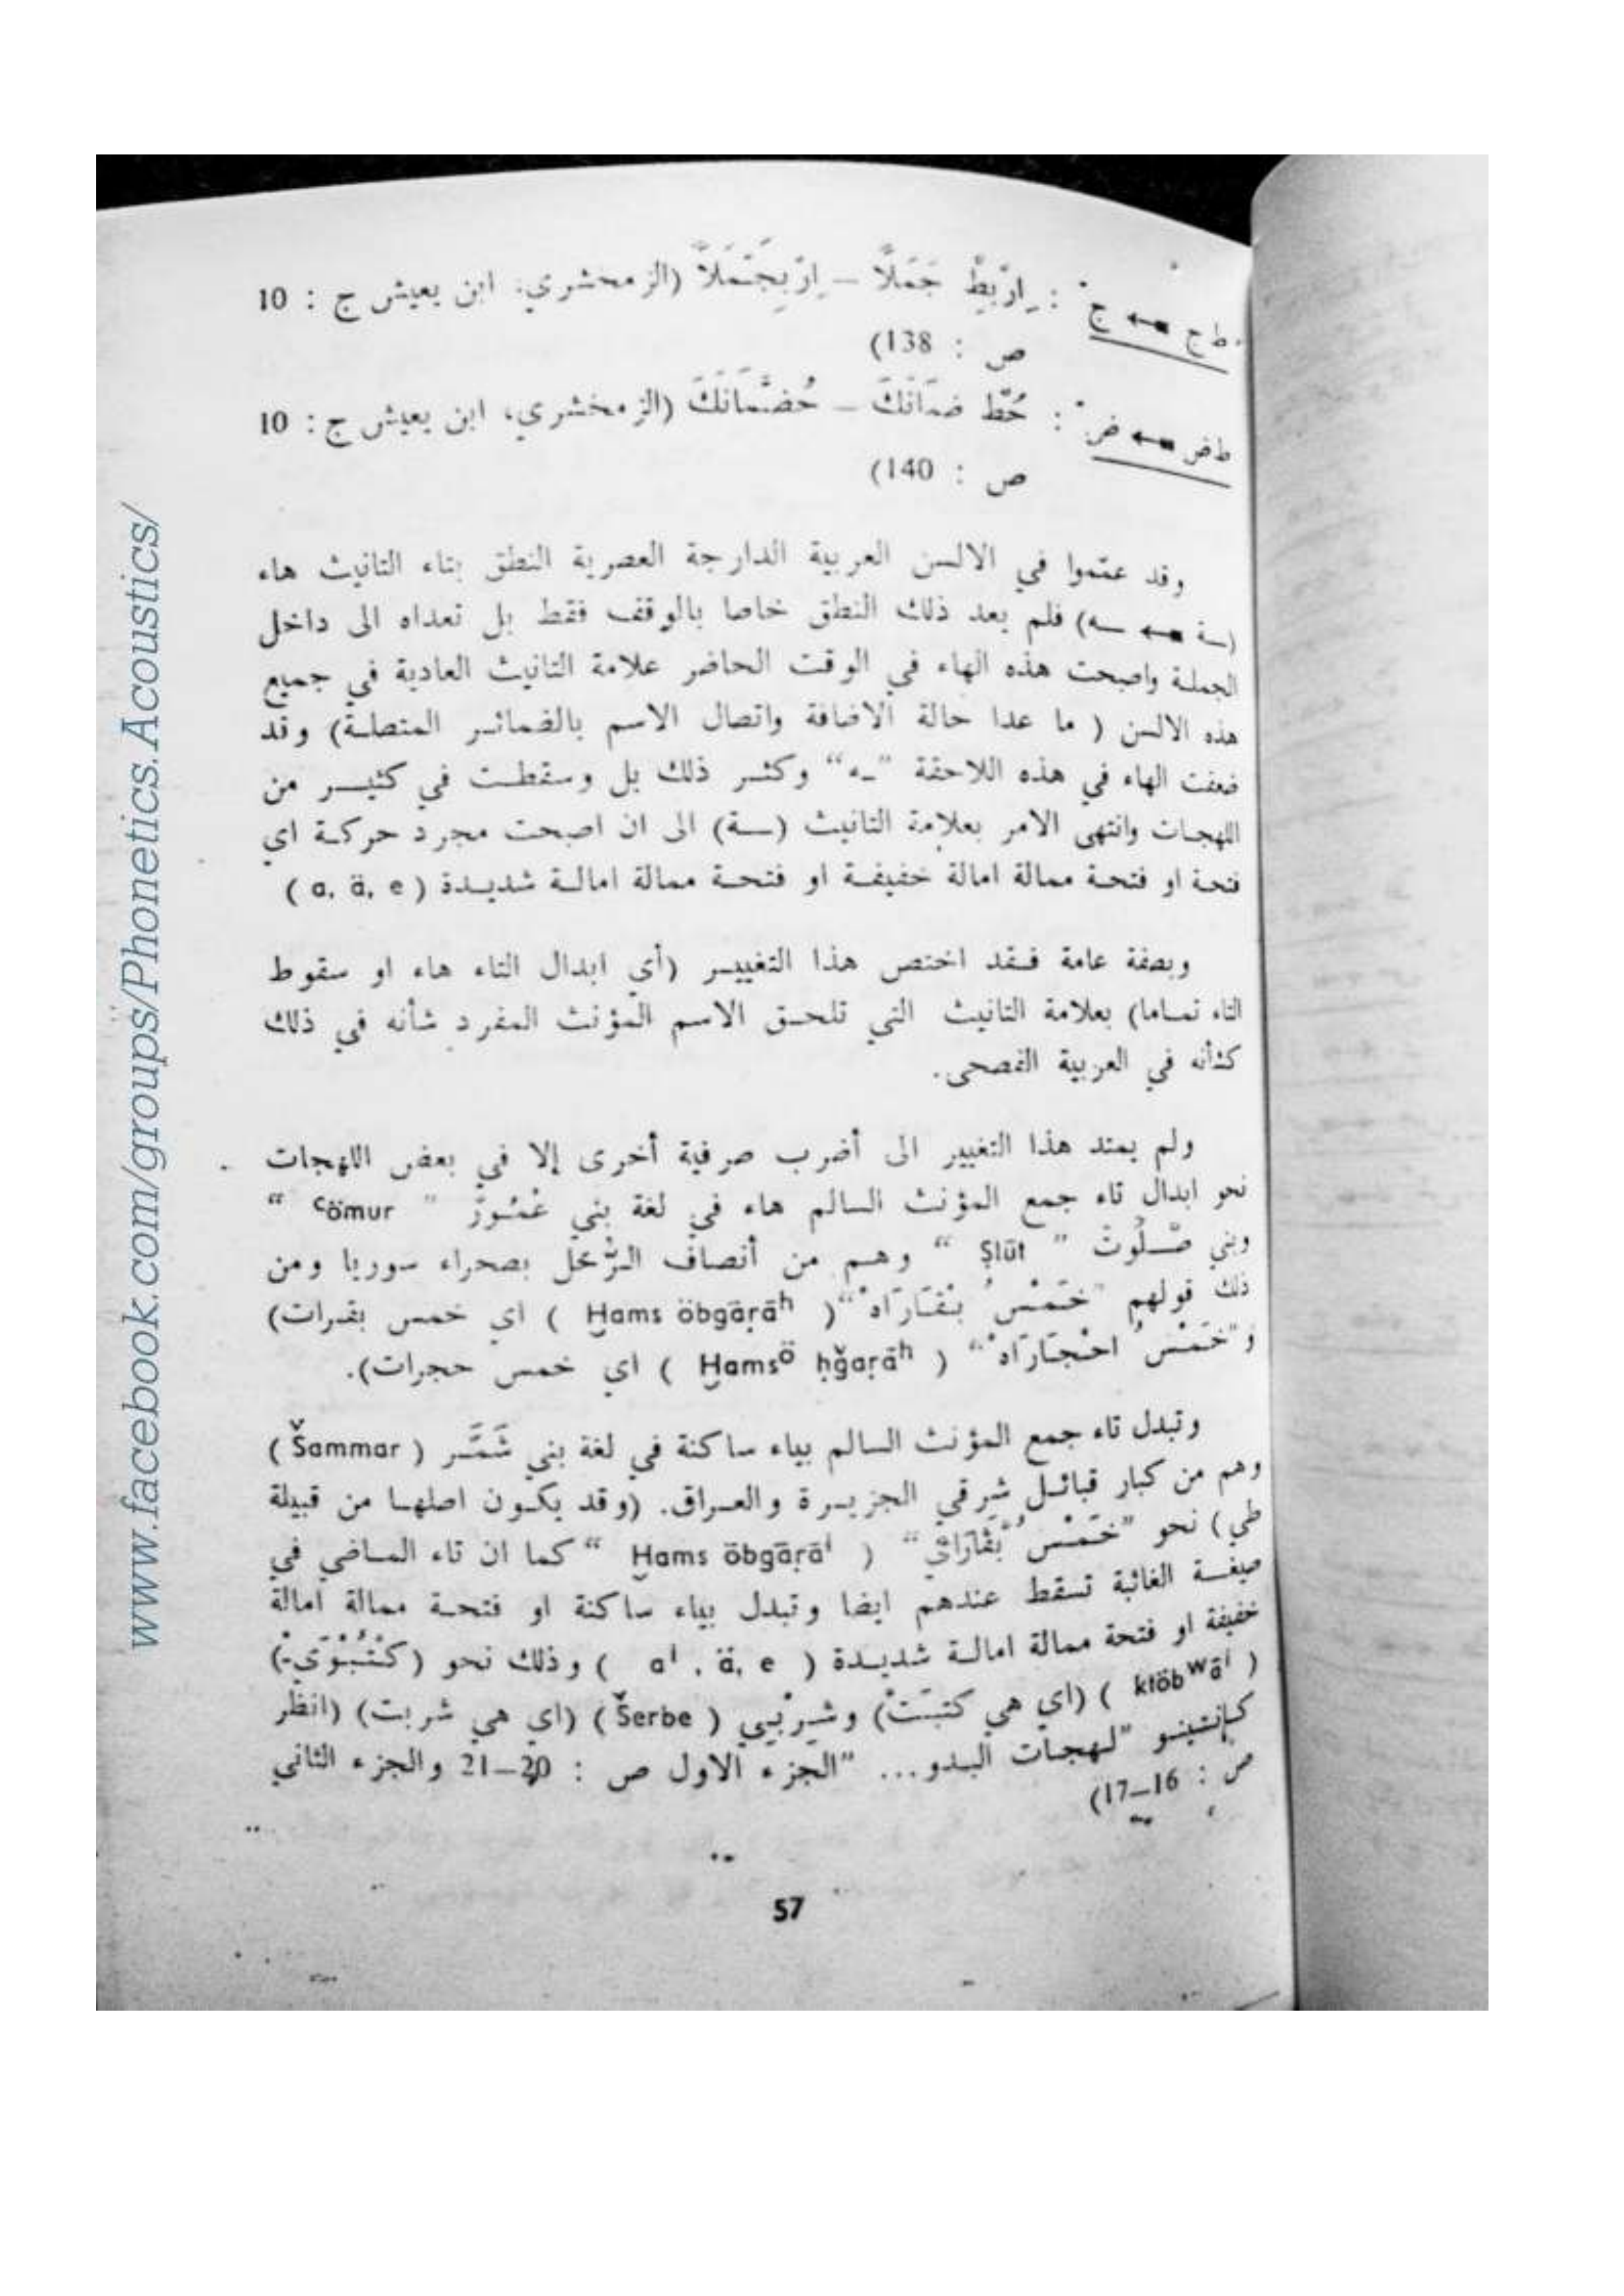 ط ج ← جّ : اِرْبِطْ جَمَلًا – اِرْبِجَّمَلًا (الزمخشري، ابن يعيش ج : 10
ص : 138)
ط ض ← ضّ : حُطْ ضمَانَكَ – حُضَّمَانَكَ (الزمخشري، ابن يعيش ج : 10
ص : 140)
وقد عمّموا في الالسن العربية الدارجة العصرية النطق بتاء التانيث هاء
(ـة ← ـه) فلم يعد ذلك النطق خاصا بالوقف فقط بل تعداه الى داخل
الجملة واصبحت هذه الهاء في الوقت الحاضر علامة التانيث العادية في جميع
هذه الالسن ( ما عدا حالة الاضافة واتصال الاسم بالضمائر المتصلة) وقد
ضعفت الهاء في هذه اللاحقة "ـه" وكثر ذلك بل وسقطت في كثير من
اللهجات وانتهى الامر بعلامة التانيث (ـة) الى ان اصبحت مجرد حركة اي
فتحة او فتحة ممالة امالة خفيفة او فتحة ممالة امالة شديدة ( a, ä, e )
وبصفة عامة فقد اختص هذا التغيير (أي ابدال التاء هاء او سقوط
التاء تماما) بعلامة التانيث التي تلحق الاسم المؤنث المفرد شأنه في ذلك
كشأنه في العربية الفصحى.
ولم يمتد هذا التغيير الى أضرب صرفية أخرى إلا في بعض اللهجات
نحو ابدال تاء جمع المؤنث السالم هاء في لغة بني عْمُورْ " ᶜömur "
وبني صْلُوتْ " Ṣlūt " وهم من أنصاف الرُّحَّل بصحراء سوريا ومن
ذلك قولهم "خَمْسْ بْقَارَاهْ" ( Ḫams öbgāṛāʰ ) اي خمس بقرات)
و"خَمْسْ احْجَارَاهْ" ( Ḫamsᵒ̈ ḥǧaṛāʰ ) اي خمس حجرات).
وتبدل تاء جمع المؤنث السالم بياء ساكنة في لغة بني شَمَّر ( Šammar )
وهم من كبار قبائل شرقي الجزيرة والعراق. (وقد يكون اصلها من قبيلة
طي) نحو "خَمْسْ بْقَارَايْ" ( Ḫams öbgāṛāⁱ " كما ان تاء الماضي في
صيغة الغائبة تسقط عندهم ايضا وتبدل بياء ساكنة او فتحة ممالة امالة
خفيفة او فتحة ممالة امالة شديدة ( aⁱ , ä, e ) وذلك نحو (كْتُبْوَيْ)
( ktöbʷāⁱ ) (اي هي كتبَتْ) وشِرْبِي ( Šerbe ) (اي هي شربت) (انظر
كانتينو "لهجات البدو... "الجزء الاول ص : 20–21 والجزء الثاني
ص : 16–17)
57
www.facebook.com/groups/Phonetics.Acoustics/